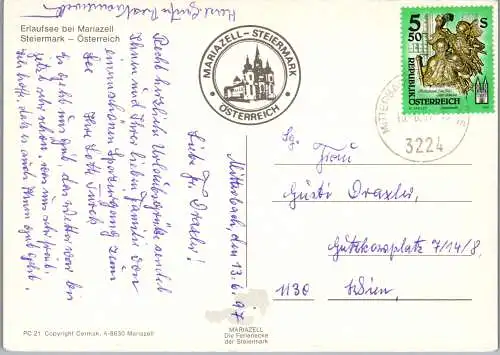 Erlaufsee bei Mariazell
Steiermark – Österreich
MARIAZELL - STEIERMARK
ÖSTERREICH
5 50 S
REPUBLIK
ÖSTERREICH
3224
Mitterbach, den 13.6.97
Liebe Fr. Draxler!
Recht herzliche Urlaubsgrüße sendet
Ihnen und Ihrer lieben Familie von
einem schönen Spaziergang zum
See Ihre
es geht uns gut, das Wetter war bis
jetzt sehr schön,
Ich hoffe, daß es auch Ihnen gut geht.
Sg. Frau
Gusti Draxler
Gutzkowplatz 7/14/8,
1130 Wien,
PC 21 Copyright Cermak, A-8630 Mariazell
MARIAZELL
Die Ferienecke
der Steiermark